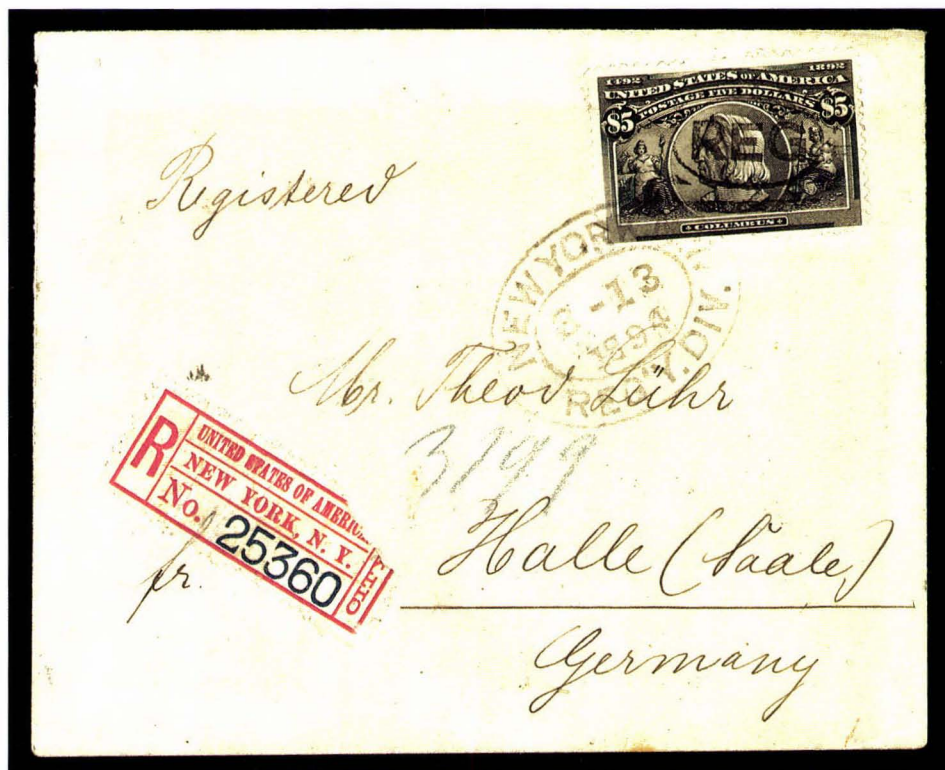 1492 1892
UNITED STATES OF AMERICA
POSTAGE FIVE DOLLARS
$5 $5
REG
COLUMBUS
Registered
NEW YORK
8-13
1894
REG'Y. DIV.
Mr. Theod Lühr
3199
R
UNITED STATES OF AMERIC
NEW YORK, N. Y.
No. 25360
fr.
Halle (Saale)
Germany